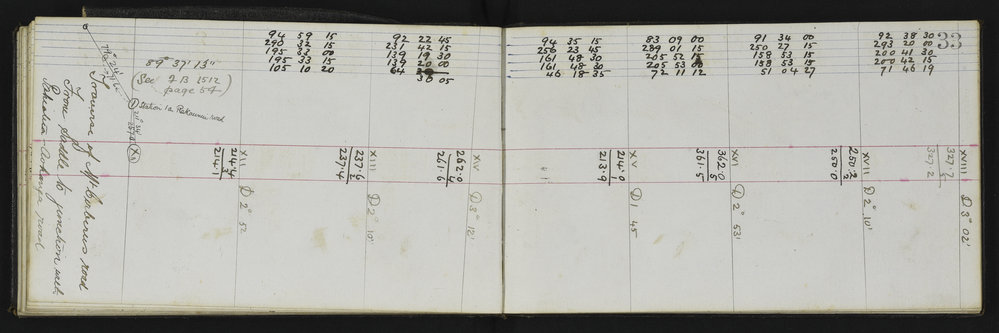 33
94 59 15
290 32 15
195 33 00
195 33 15
105 10 20
92 22 45
231 42 15
139 19 30
139 20 00
30 05
94 35 15
256 23 45
161 48 30
161 48 30
46 18 35
83 09 00
289 01 15
205 52 15
205 53 00
72 11 12
91 34 00
250 27 15
158 53 15
158 53 15
51 04 27
92 38 30
293 20 00
200 41 30
200 42 15
71 46 19
89° 37' 13"
(See FB 2512
page 54)
Station 1a Pakaurua road
Traverse of Mt Cerberus road
From Saddle to junction with
road
XII
214.4
3
214.1
D 2° 52
XIII
237.6
2
237.4
D 2° 10'
XV
262.0
4
261.6
D 3° 12'
XV
214.0
213.9
D 1 45
XVI
362.0
5
361.5
D 2° 53'
XVII
250.2
2
250.0
D 2° 10'
XVIII
327.7
5
327.2
D 3° 02'